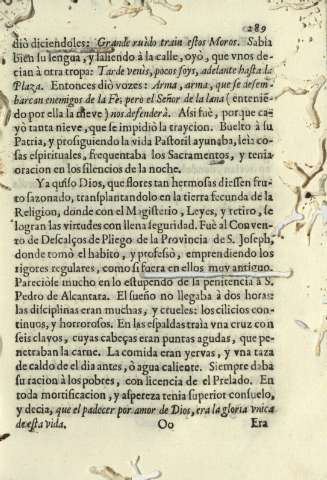 289
diò diciendoles: Grande ruìdo train estos Moros. Sabia
bien su lengua, y saliendo à la calle, oyó, que vnos de-
zian à otra tropa: Tarde venis, pocos soys, adelante hasta la
Plaza. Entonces diò vozes: Arma, arma, que se desem-
barcan enemigos de la Fè, pero el Señor de la lana (entenie-
do por ella la nieve) nos defenderà. Asi fuè, por que ca-
yò tanta nieve, que se impidiò la trayciòn. Buelto à su
Patria, y prosiguiendo la vida Pastoril ayunaba, leìa co-
sas espirituales, frequentaba los Sacramentos, y tenia
oracion en los silencios de la noche.
Ya quiso Dios, que flores tan hermosas diessen fru-
to sazonado, transplantandolo en la tierra fecunda de la
Religion, donde con el Magisterio, Leyes, y retiro, se
logran las virtudes con llena seguridad. Fuè al Conven-
to de Descalços de Pliego de la Provincia de S. Joseph,
donde tomò el habito, y professò, emprendiendo los
rigores regulares, como si fuera en ellos muy antiguo.
Pareciòle mucho en lo estupendo de la penitencia à S.
Pedro de Alcantara. El sueño no llegaba à dos horas:
las disciplinas eran muchas, y crueles: los cilicios con-
tinuos, y horrorosos. En las espaldas traìa vna cruz con
seis clavos, cuyas cabeças eran puntas agudas, que pe-
netraban la carne. La comida eran yervas, y vna taza
de caldo de el dia antes, ò agua caliente. Siempre daba
su racion à los pobres, con licencia de el Prelado. En
toda mortificacion, y aspereza tenia superior consuelo,
y decia, que el padecer por amor de Dios, era la gloria vnica
de esta vida.
Oo
Era